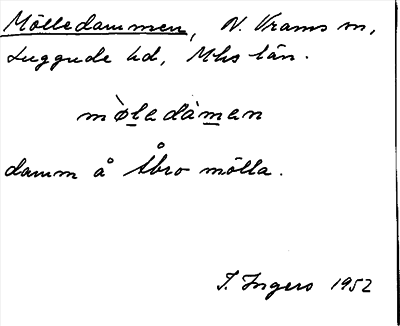 Mölledammen, N. Vrams sn,
Luggude hd, Mhs län.
mø̀ledàmen
damm å Åbro mölla.
I. Ingers 1952